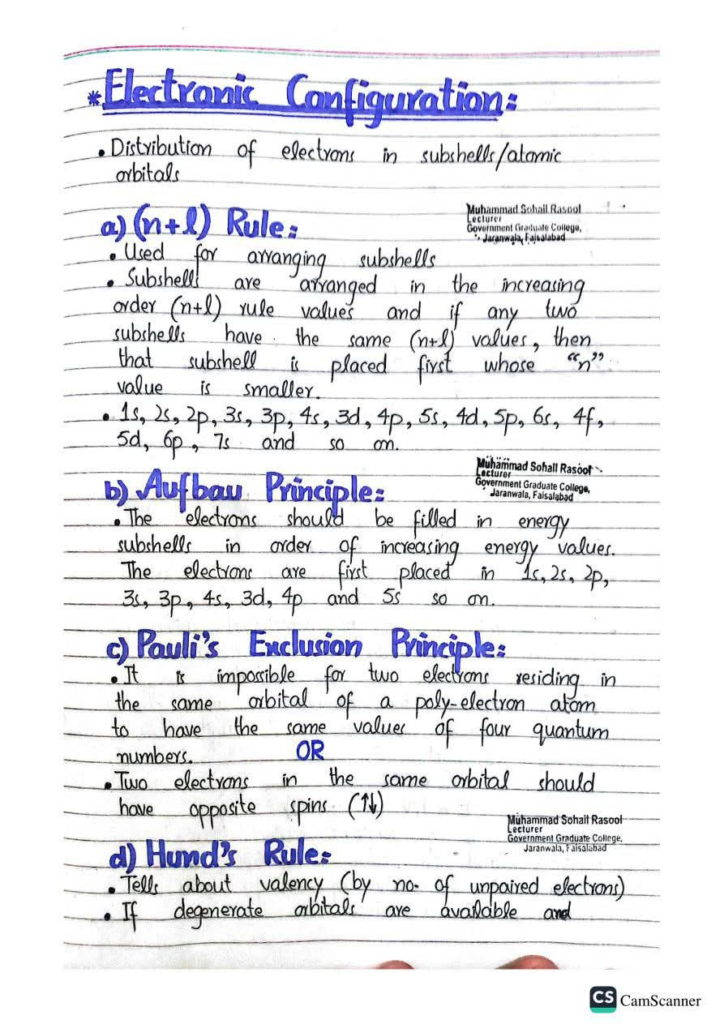 * Electronic Configuration:
• Distribution of electrons in subshells/atomic
orbitals
Muhammad Sohail Rasool
Lecturer
Government Graduate College,
Jaranwala, Faisalabad
a) (n+l) Rule:
• Used for arranging subshells
• Subshells are arranged in the increasing
order (n+l) rule values and if any two
subshells have the same (n+l) values, then
that subshell is placed first whose "n"
value is smaller.
• 1s, 2s, 2p, 3s, 3p, 4s, 3d, 4p, 5s, 4d, 5p, 6s, 4f,
5d, 6p, 7s and so on.
Muhammad Sohail Rasool
Lecturer
Government Graduate College,
Jaranwala, Faisalabad
b) Aufbau Principle:
• The electrons should be filled in energy
subshells in order of increasing energy values.
The electrons are first placed in 1s, 2s, 2p,
3s, 3p, 4s, 3d, 4p and 5s so on.
c) Pauli's Exclusion Principle:
• It is impossible for two electrons residing in
the same orbital of a poly-electron atom
to have the same values of four quantum
numbers. OR
• Two electrons in the same orbital should
have opposite spins (↑↓)
Muhammad Sohail Rasool
Lecturer
Government Graduate College,
Jaranwala, Faisalabad
d) Hund's Rule:
• Tells about valency (by no. of unpaired electrons)
• If degenerate orbitals are available and
CS CamScanner